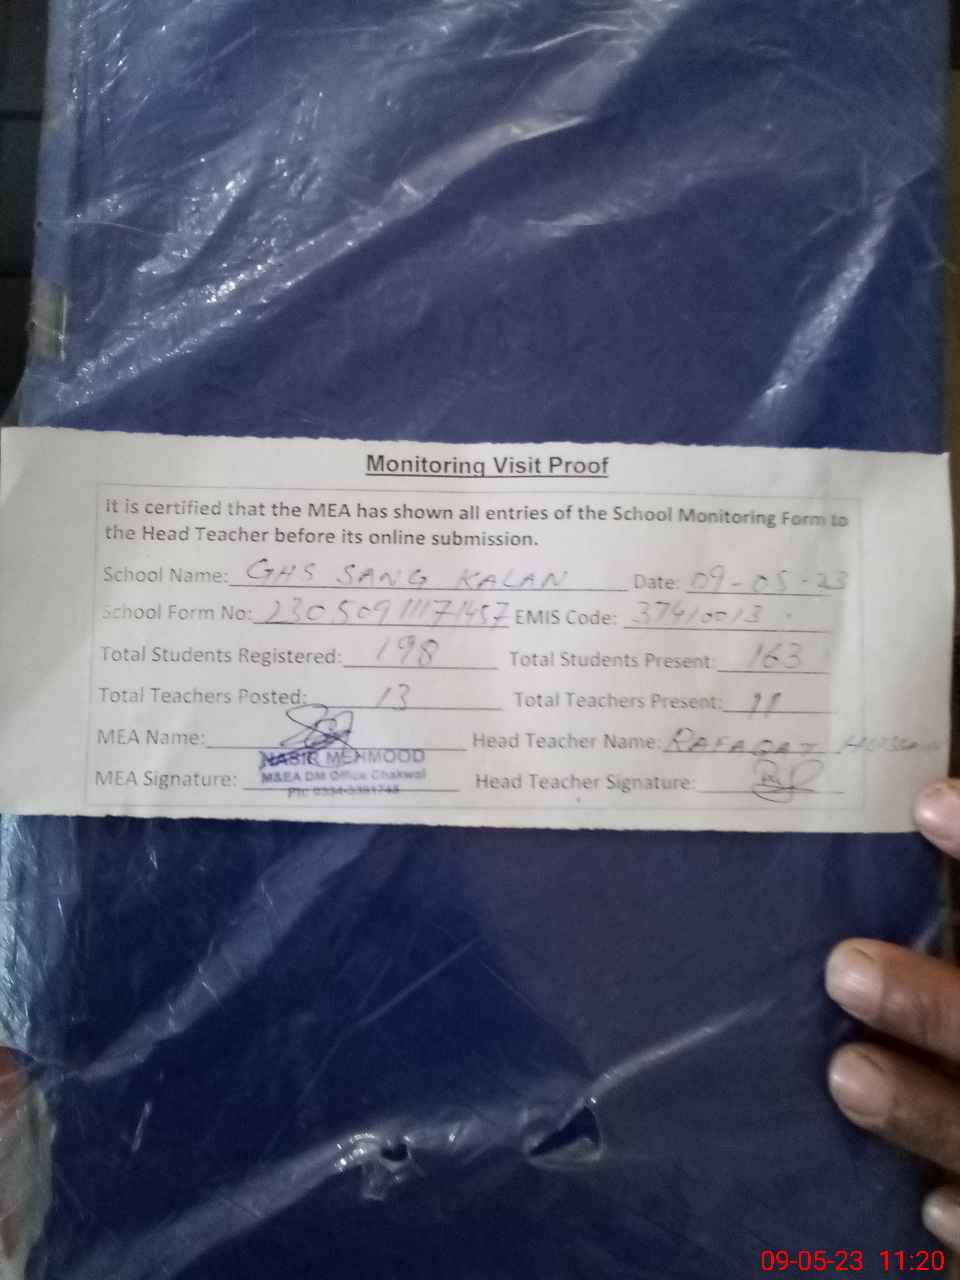 Monitoring Visit Proof
It is certified that the MEA has shown all entries of the School Monitoring Form to
the Head Teacher before its online submission.
School Name: GHS SANG KALAN Date: 09-05-23
School Form No: EMIS Code: 37410013
Total Students Registered: 198 Total Students Present: 163
Total Teachers Posted: 13 Total Teachers Present: 11
MEA Name: Head Teacher Name: RAFAQAT HUSSAIN
NASIR MEHMOOD
MEA Signature: M&EA DM Office Chakwal Head Teacher Signature:
09-05-23 11:20